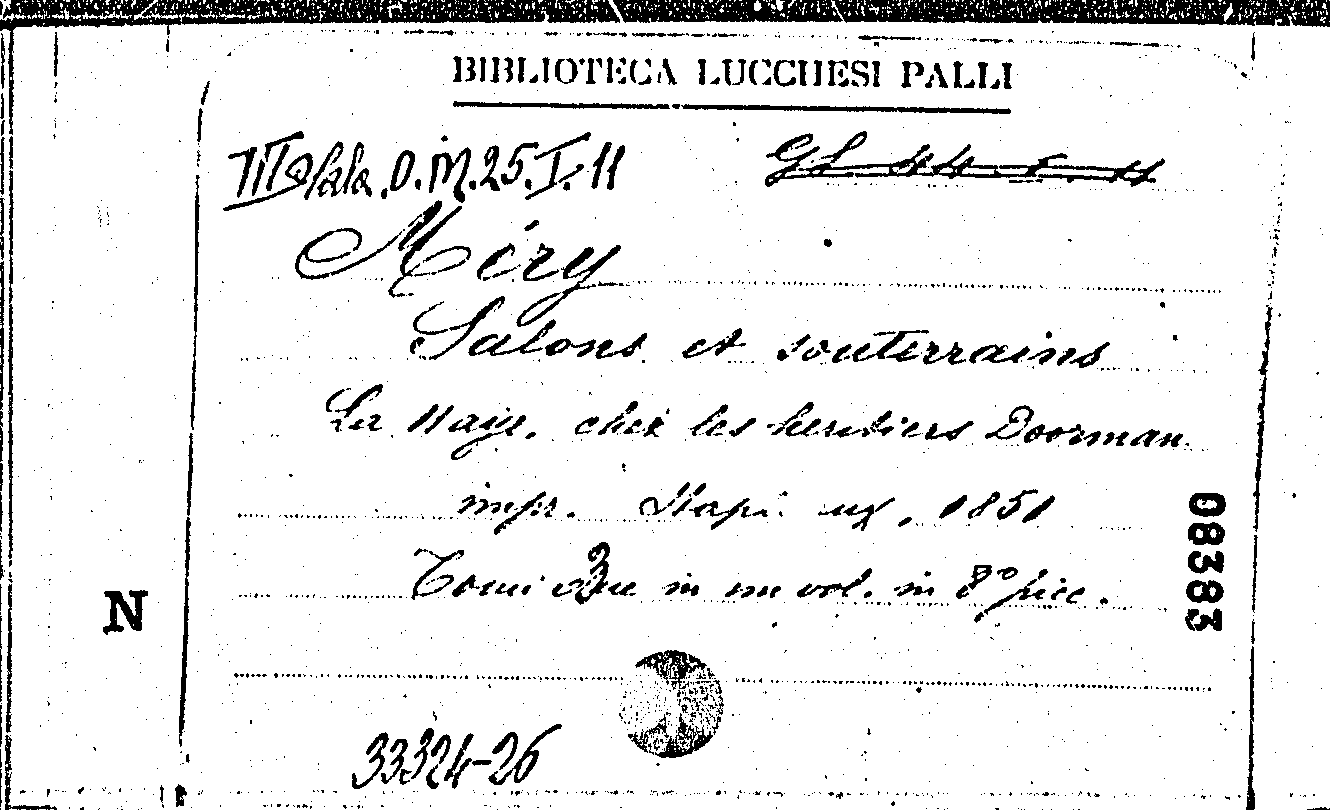 BIBLIOTECA LUCCHESI PALLI
III Sala. D. M. 25. I. 11
GL 44. I. 11
Méry
Salons et souterrains
La Haye. chez les heritiers Doorman
impr. 1851
Tomi 3 in un vol. in 8° picc.
08383
N
33324-26